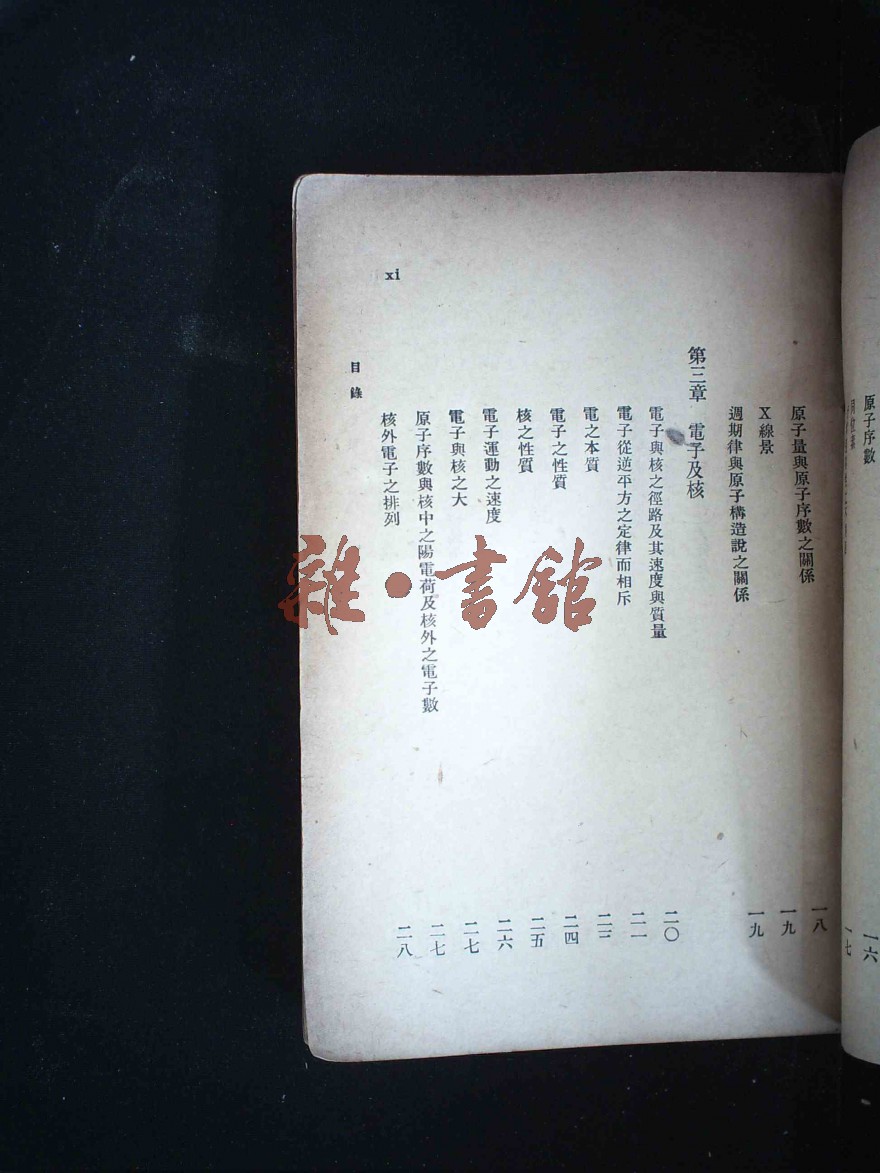 原子序數 一六
一七
原子量與原子序數之關係 一八
X線景 一九
週期律與原子構造說之關係 一九
第三章 電子及核
電子與核之徑路及其速度與質量 二〇
電子從逆平方之定律而相斥 二一
電之本質 二三
電子之性質 二四
核之性質 二五
電子運動之速度 二六
電子與核之大 二七
原子序數與核中之陽電荷及核外之電子數 二七
核外電子之排列 二八
目錄
xi
雜·書館